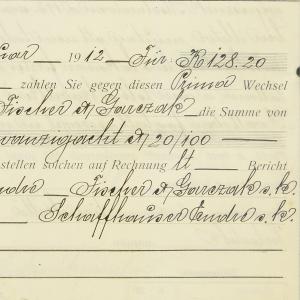 uar 1912 Für K 128.20
zahlen Sie gegen diesen Prima Wechsel
Fischer & Garczak die Summe von
wanzigacht & 20/100
stellen solchen auf Rechnung lt Bericht
Fischer & Garczak s. k.
Schaffhauser Endre s. k.